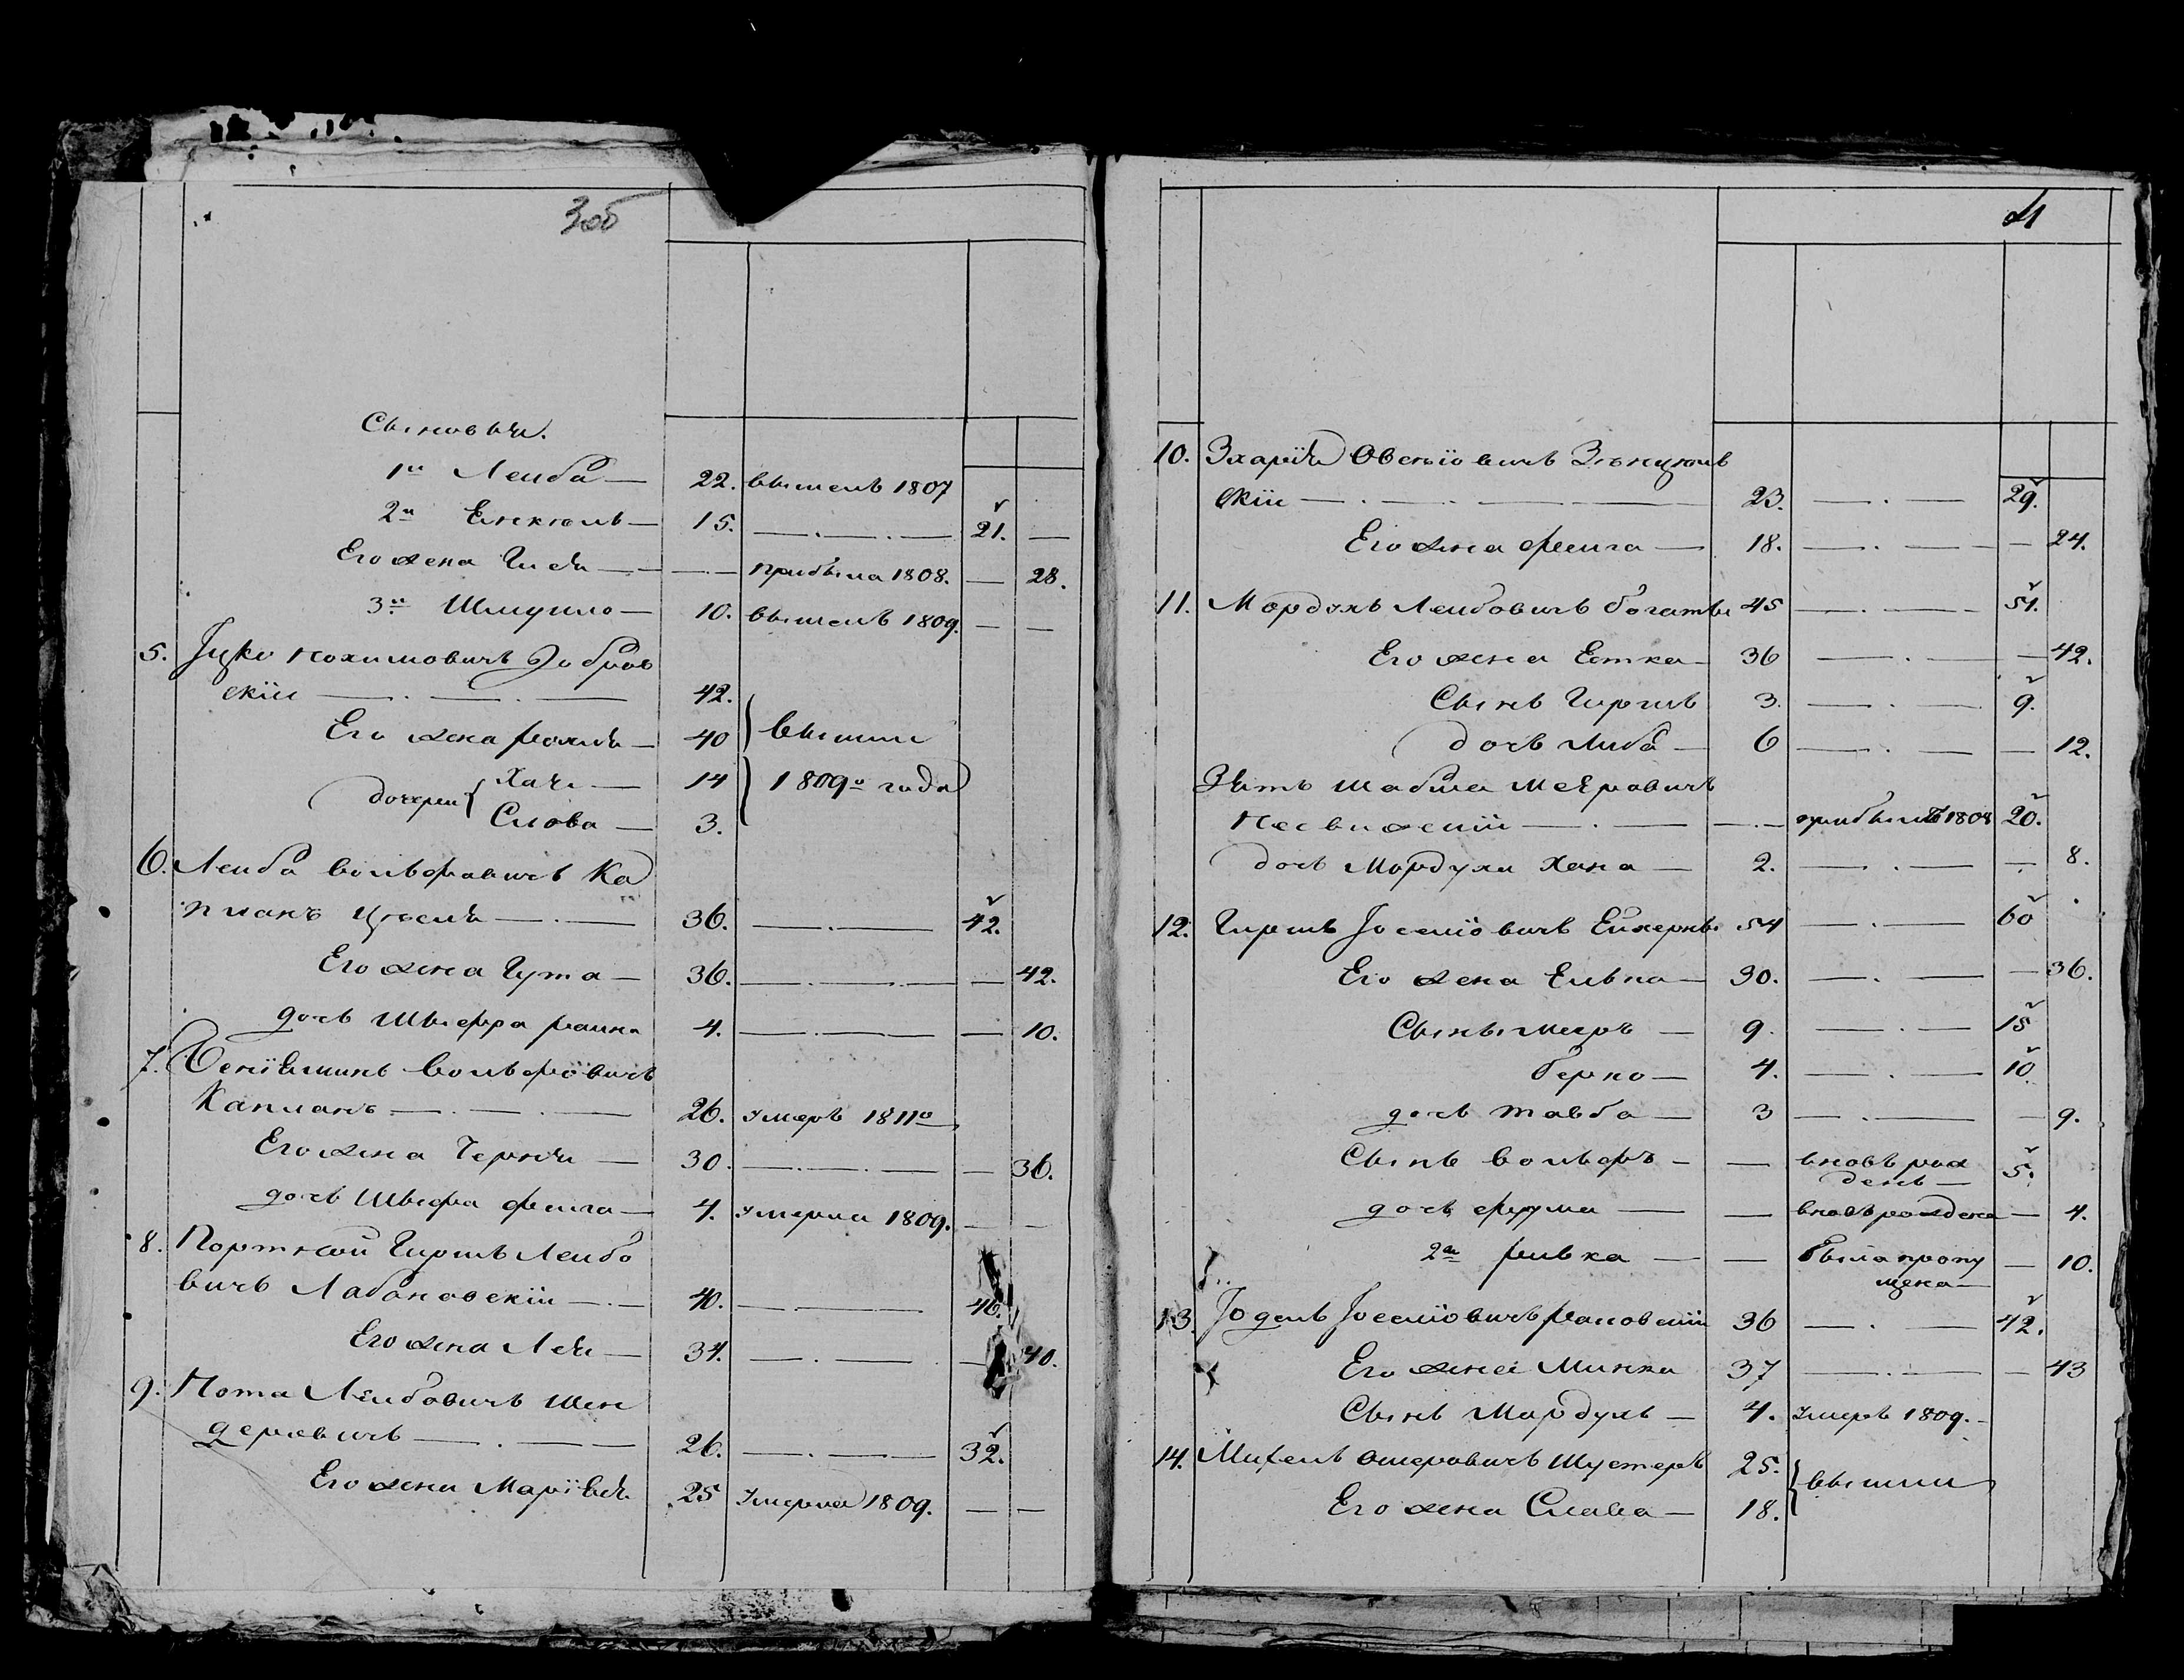 3об
Сыновья.
1й Лейба — 22. вышелъ 1807
2й Енкюль — 15. — . — . — 21. —
Его жена Гися — — — . — прибыла 1808. — 28.
3й Шмуило — 10. вышелъ 1809. — —
5. Іцко Нохимовичъ Добров
скіи — . — . — 42.
Его жена — 40 } вышли
дочери { Хая — 14 } 1809го года
Слова — 3.
6. Лейба Вольфовичъ Ка
планъ — . — 36. — . — 42.
Его жена Гута — 36. — . — . — — 42.
дочь Швефра Раина 4. — . — — 10.
7. Беніяминъ Вольфовичъ
Капланъ — . — . — 26. Умеръ 1811го
Его жена Черня — 30. — . — . — — 36.
дочь Шифра Феига — 4. Умерла 1809. — —
8. Портной Гиршъ Леибо
вичъ Лабановскіи — . — 40. — . — 46.
Его жена Лея — 34. — . — . — 40.
9. Нота Леибовичъ Шен
деровичъ — . — — 26. — . — . — 32.
Его жена 25 Умерла 1809. — —
4
10. Зхарія
скіи — . — . — 23. — . — 29.
Его жена Феига — 18. — . — — — 24.
11. Мордухъ Леибовичъ Богаты 45 — . — — 51.
Его жена Етка — 36 — . — — 42.
Сынъ Гиршъ 3. — . — 9.
дочь Либа — 6 — . — — 12.
Зять Шабша Меяровичъ
Несвижскіи — . — — . — прибылъ 1808 20.
дочь Мордуха Хана — 2. — . — — 8.
12. Гиршъ Іоселіовичъ 54 — . — 60
Его жена Еливка — 30. — . — — 36.
Сыны Меиръ — 9. — . — 15
Берко — 4. — . — 10
дочь Тавба — 3 — . — — 9.
Сынъ Вольфъ — — вновь рож
денъ — 5.
дочь Фрума — — вновь рождена — 4.
2я Ривка — — была пропу
щена — — 10.
13. Іодель Іоселіовичъ 36 — . — 42.
Его жена Минка 37 — . — — 43
Сынъ Мордухъ — 4. Умеръ 1809. —
14. Михель Ошеровичъ Шустеръ 25. } вышли
Его жена Слава — 18.